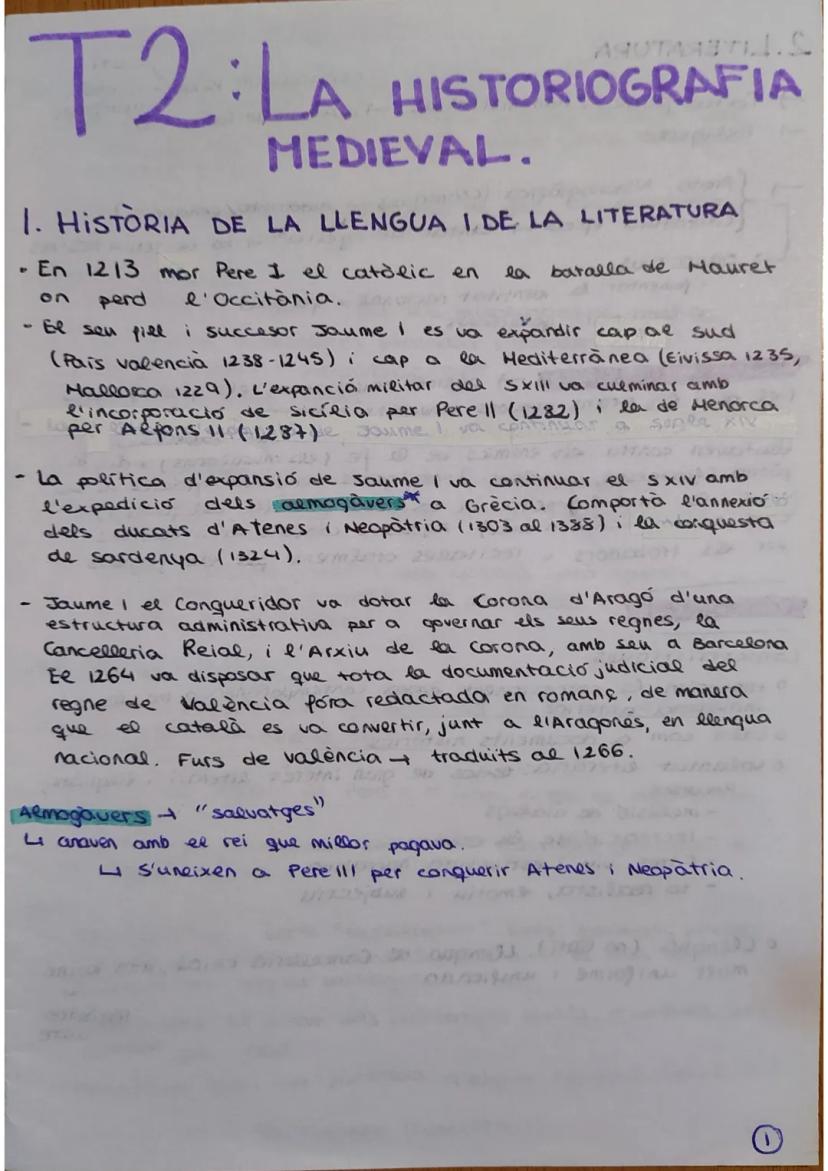 T2: LA HISTORIOGRAFIA
MEDIEVAL.
1. HISTÒRIA DE LA LLENGUA I DE LA LITERATURA
• En 1213 mor Pere I el catòlic en la batalla de Mauret
on perd l'Occitània.
- El seu fill i successor Jaume I es va expandir cap al sud
(País valencià 1238-1245) i cap a la Mediterrànea (Eivissa 1235,
Mallorca 1229). L'expanció militar del s XIII va culminar amb
l'incorporació de Sicília per Pere II (1282) i la de Menorca
per Alfons II (1287)
- La política d'expansió de Jaume I va continuar el s XIV amb
l'expedició dels almogàvers* a Grècia. Comportà l'annexió
dels ducats d'Atenes i Neopàtria (1303 al 1388) i la conquesta
de Sardenya (1324).
- Jaume I el Conqueridor va dotar la Corona d'Aragó d'una
estructura administrativa per a governar els seus regnes, la
Cancelleria Reial, i l'Arxiu de la Corona, amb seu a Barcelona
El 1264 va disposar que tota la documentació judicial del
regne de València fóra redactada en romanç, de manera
que el català es va convertir, junt a l'Aragonés, en llengua
nacional. Furs de València → traduits al 1266.
Almogàvers → "salvatges"
↳ anaven amb el rei que millor pagava.
↳ S'uneixen a Pere III per conquerir Atenes i Neopàtria.
1